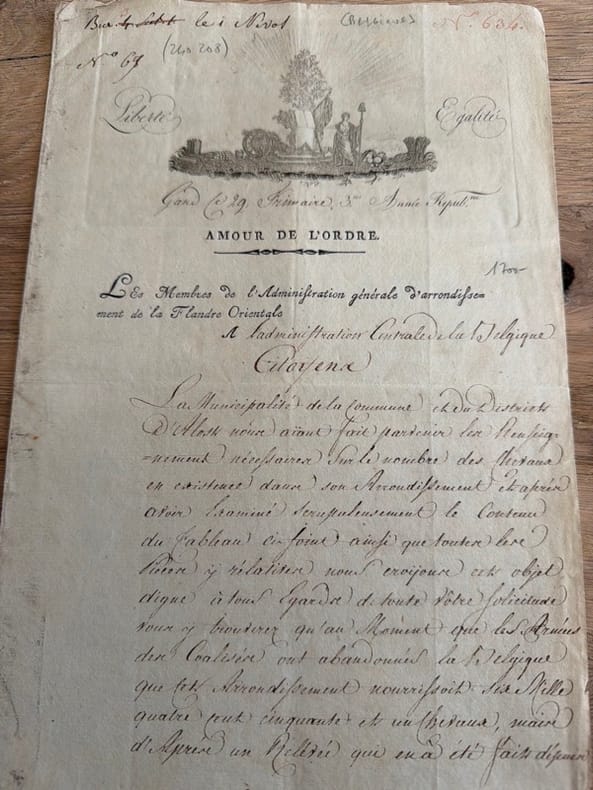 le 1 Nivos
(Belgique) N.° 634.
N.° 65 (240 208)
Liberté Egalité
Gand Ce 29 Frimaire, 3.me Année Republ.ne
AMOUR DE L'ORDRE.
1200-
LEs Membres de l'Administration générale d'arrondisse=
ment de la Flandre Orientale
A l'administration Centrale de la Belgique
Citoyens
La Municipalité de la Commune et du District
D'Alost nous aÿant fait parvenir les Renseig=
=nement nécessaires sur le nombre des Chevaux
en existence dans son Arrondissement et après
avoir Examiné scrupuleusement le Contenu
du Tableau ci-joint ainsi que toutes les
Pièces y rélatives nous croÿons cet objet
digne à tous Egards de toute Vôtre sollicitude
vous y trouverez qu'au Moment que les Armées
des Coalisés ont abandonnés la Belgique
que cet Arrondissement nourrissoit six Mille
quatre cent cinquante et un Chevaux, mais
d'Après un Rellevée que en à été fait dépuis